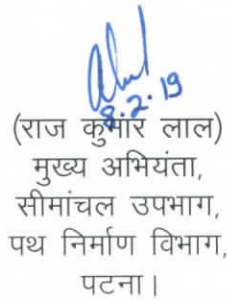 8.2.19
(राज कुमार लाल)
मुख्य अभियंता,
सीमांचल उपभाग,
पथ निर्माण विभाग,
पटना।